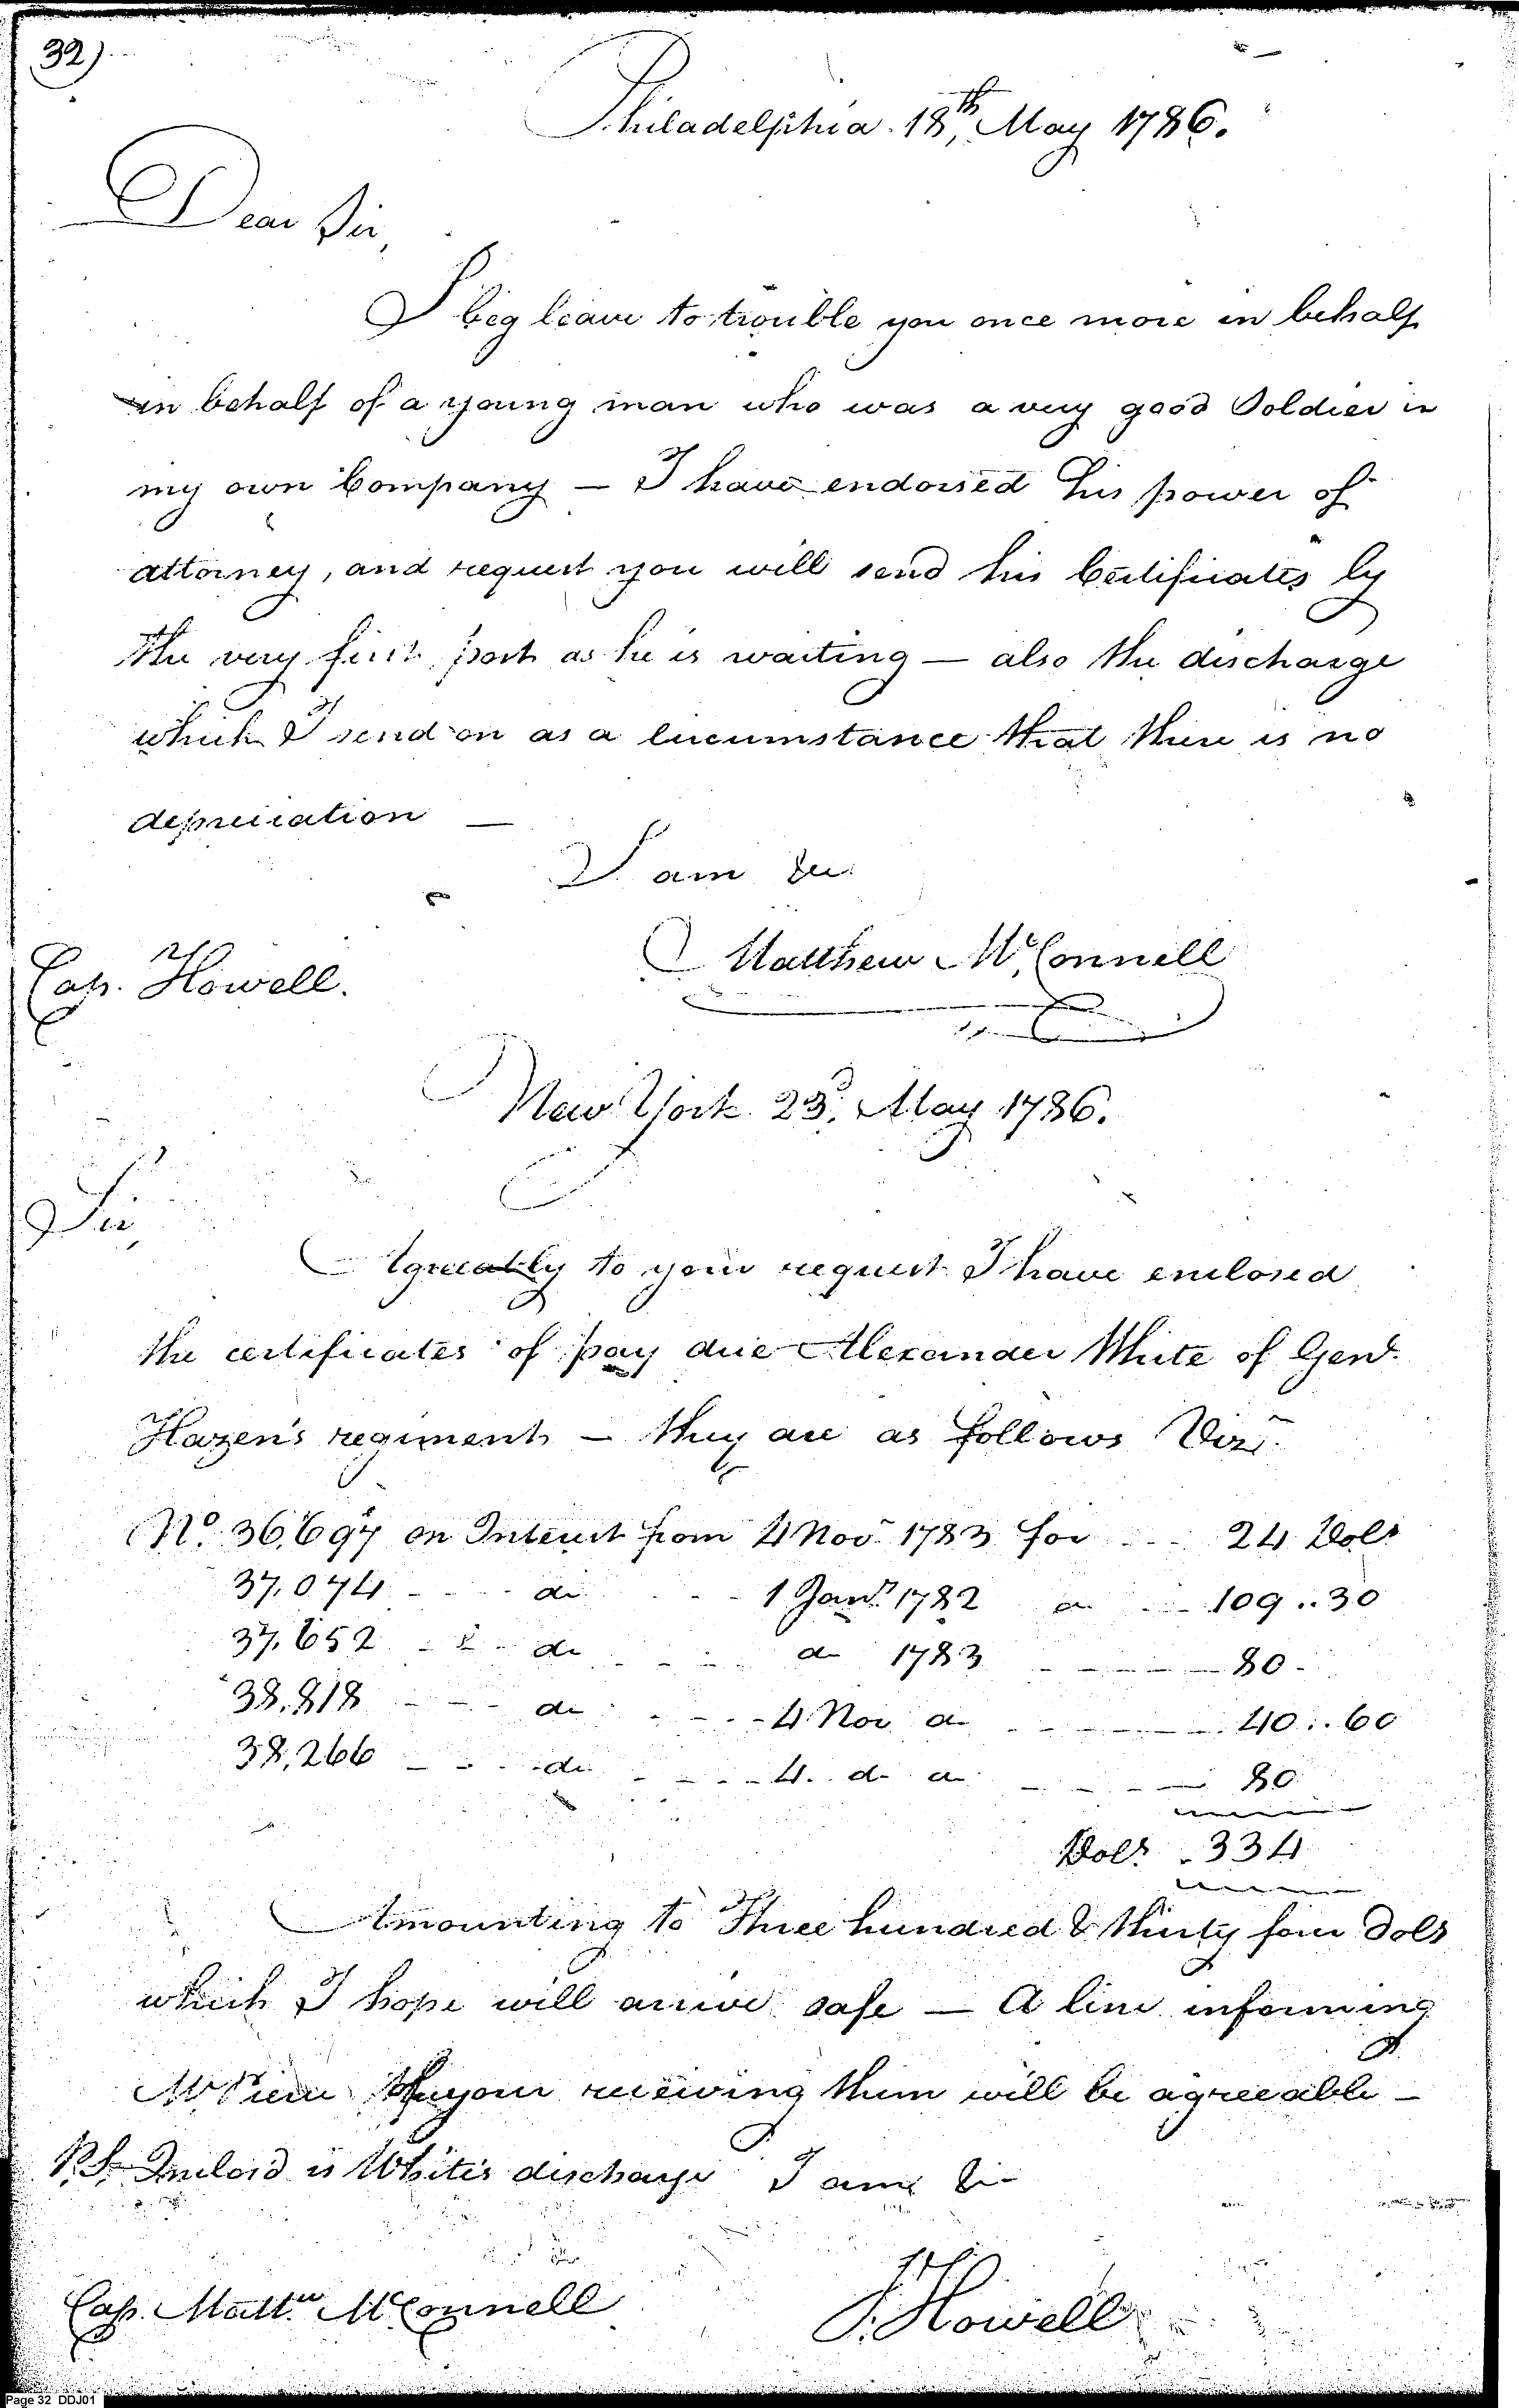 32)
Philadelphia. 18th, May 1786.
Dear Sir,
I beg leave to trouble you once more in behalf
in behalf of a young man who was a very good Soldier in
my own Company — I have endorsed his power of
attorney, and request you will send his Certificates by
the very first post as he is waiting — also the discharge
which I send on as a Circumstance that there is no
depreciation —
I am &c.
Matthew McConnell
Cap. Howell.
New York. 23d. May 1786.
Sir,
Agreeably to your request I have enclosed
the certificates of pay due Alexander White of Genl.
Hazen's regiment — they are as follows Viz.
No. 36,697 on Interest from 4 Nov. 1783 for ... 24 Dols
37,074 - - - - do - - - 1 Jany. 1782 do - - - 109..30
37,652 - - - do - - - - do 1783 - - - - - 80 -
38,818 - - - do - - - - 4 Nov do - - - - - 40..60
38,266 - - - do - - - - 4. do do - - - - - 80
Dols. 334
Amounting to Three hundred & thirty four Dols
which I hope will arrive safe — A line informing
Mr Pierce of your receiving them will be agreeable —
P.S. Inclosd is White's discharge I am &c
Cap. Mattw. McConnell
J. Howell
Page 32 DDJ01